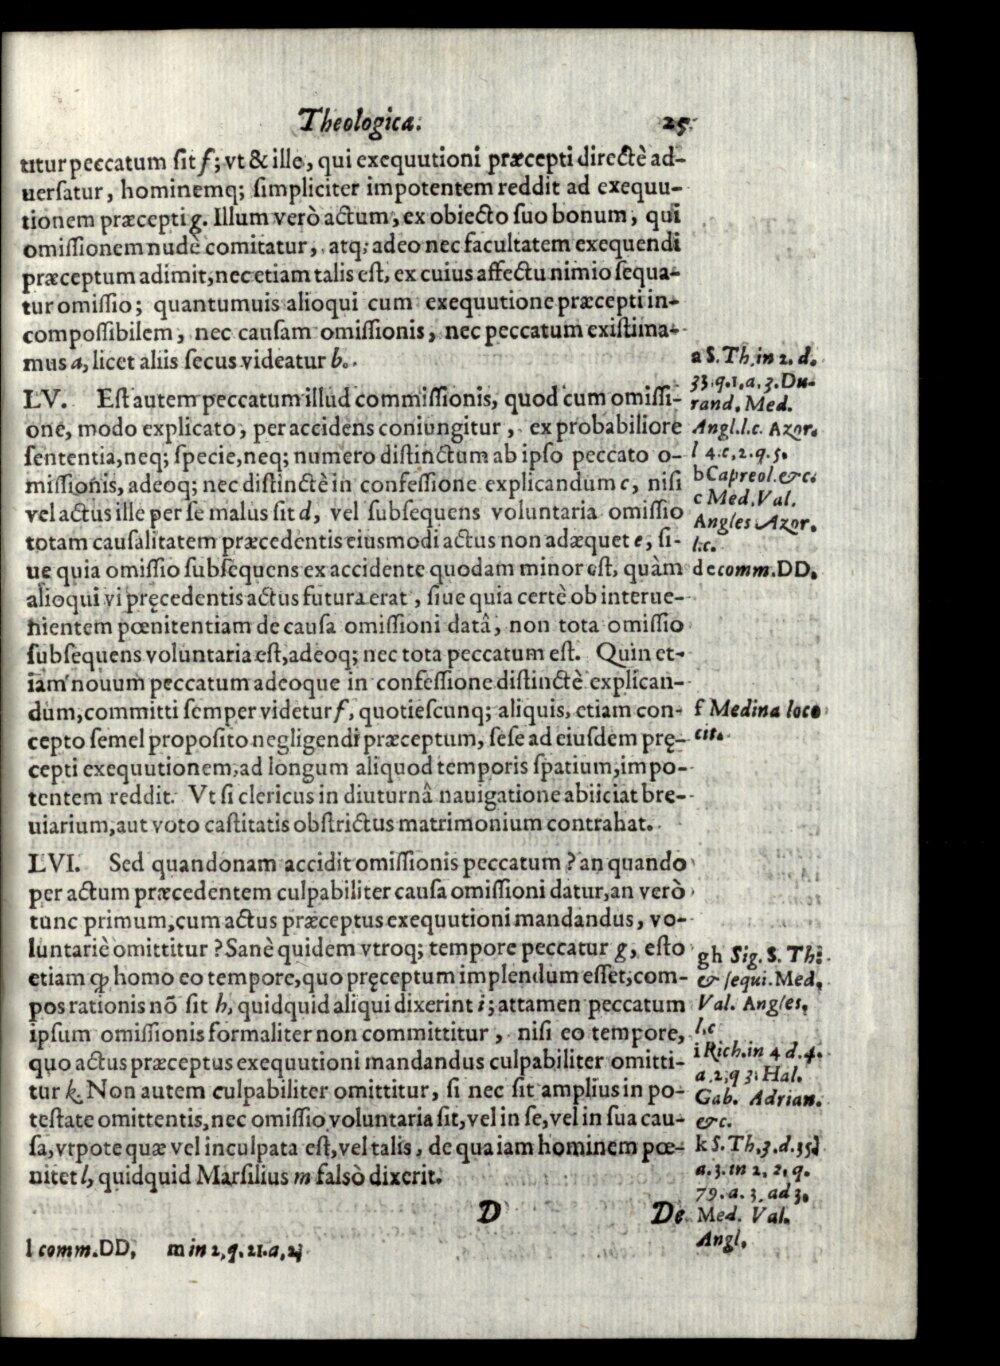 Theologica. 25.
titur peccatum sit f; vt & ille, qui exequutioni præcepti directè ad-
uersatur, hominemq; simpliciter impotentem reddit ad exequu-
tionem præcepti g. Illum verò actum, ex obiecto suo bonum, qui
omissionem nudè comitatur, atq; adeo nec facultatem exequendi
præceptum adimit, nec etiam talis est, ex cuius affectu nimio sequa-
tur omissio; quantumuis alioqui cum exequutione præcepti in-
compossibilem, nec causam omissionis, nec peccatum existima-
mus a, licet aliis secus videatur b.
LV. Est autem peccatum illud commissionis, quod cum omissi-
one, modo explicato, per accidens coniungitur, ex probabiliore
sententia, neq; specie, neq; numero distinctum ab ipso peccato o-
missionis, adeoq; nec distinctè in confessione explicandum c, nisi
vel actus ille per se malus sit d, vel subsequens voluntaria omissio
totam causalitatem præcedentis eiusmodi actus non adæquet e, si-
ue quia omissio subsequens ex accidente quodam minor est, quàm
alioqui vi pręcedentis actus futura erat, siue quia certè ob interue-
nientem pœnitentiam de causa omissioni datâ, non tota omissio
subsequens voluntaria est, adeoq; nec tota peccatum est. Quin et-
iam nouum peccatum adeoque in confessione distinctè explican-
dum, committi semper videtur f, quotiescunq; aliquis, etiam con-
cepto semel proposito negligendi præceptum, sese ad eiusdem prę-
cepti exequutionem, ad longum aliquod temporis spatium, impo-
tentem reddit. Vt si clericus in diuturnâ nauigatione abiiciat bre-
uiarium, aut voto castitatis obstrictus matrimonium contrahat.
LVI. Sed quandonam accidit omissionis peccatum? an quando
per actum præcedentem culpabiliter causa omissioni datur, an verò
tunc primum, cum actus præceptus exequutioni mandandus, vo-
luntariè omittitur? Sanè quidem vtroq; tempore peccatur g, esto
etiam ꝙ homo eo tempore, quo pręceptum implendum esset, com-
pos rationis nõ sit h, quidquid aliqui dixerint i; attamen peccatum
ipsum omissionis formaliter non committitur, nisi eo tempore,
quo actus præceptus exequutioni mandandus culpabiliter omitti-
tur k. Non autem culpabiliter omittitur, si nec sit amplius in po-
testate omittentis, nec omissio voluntaria sit, vel in se, vel in sua cau-
sa, vtpote quæ vel inculpata est, vel talis, de qua iam hominem pœ-
nitet l, quidquid Marsilius m falsò dixerit.
D De
l comm. DD, m in 2, q. 21. a, 2;
a S. Th. in 2. d.
33. q. 1, a. 3. Du-
rand. Med.
Angl. l. c. Azor.
l 4. c, 2. q. 5.
b Capreol. &c.
c Med. Val.
Angles Azor.
l. c.
d e comm. DD,
f Medina loco
cit.
gh Sig. S. Th:
& sequi. Med,
Val. Angles,
l, c
i Rich. in 4 d. 4.
a, 2, q 3. Hal.
Gab. Adrian.
&c.
k S. Th. 3. d. 35
a. 3. in 2. 2. q.
79. a. 3. ad 3.
Med. Val.
Angl,